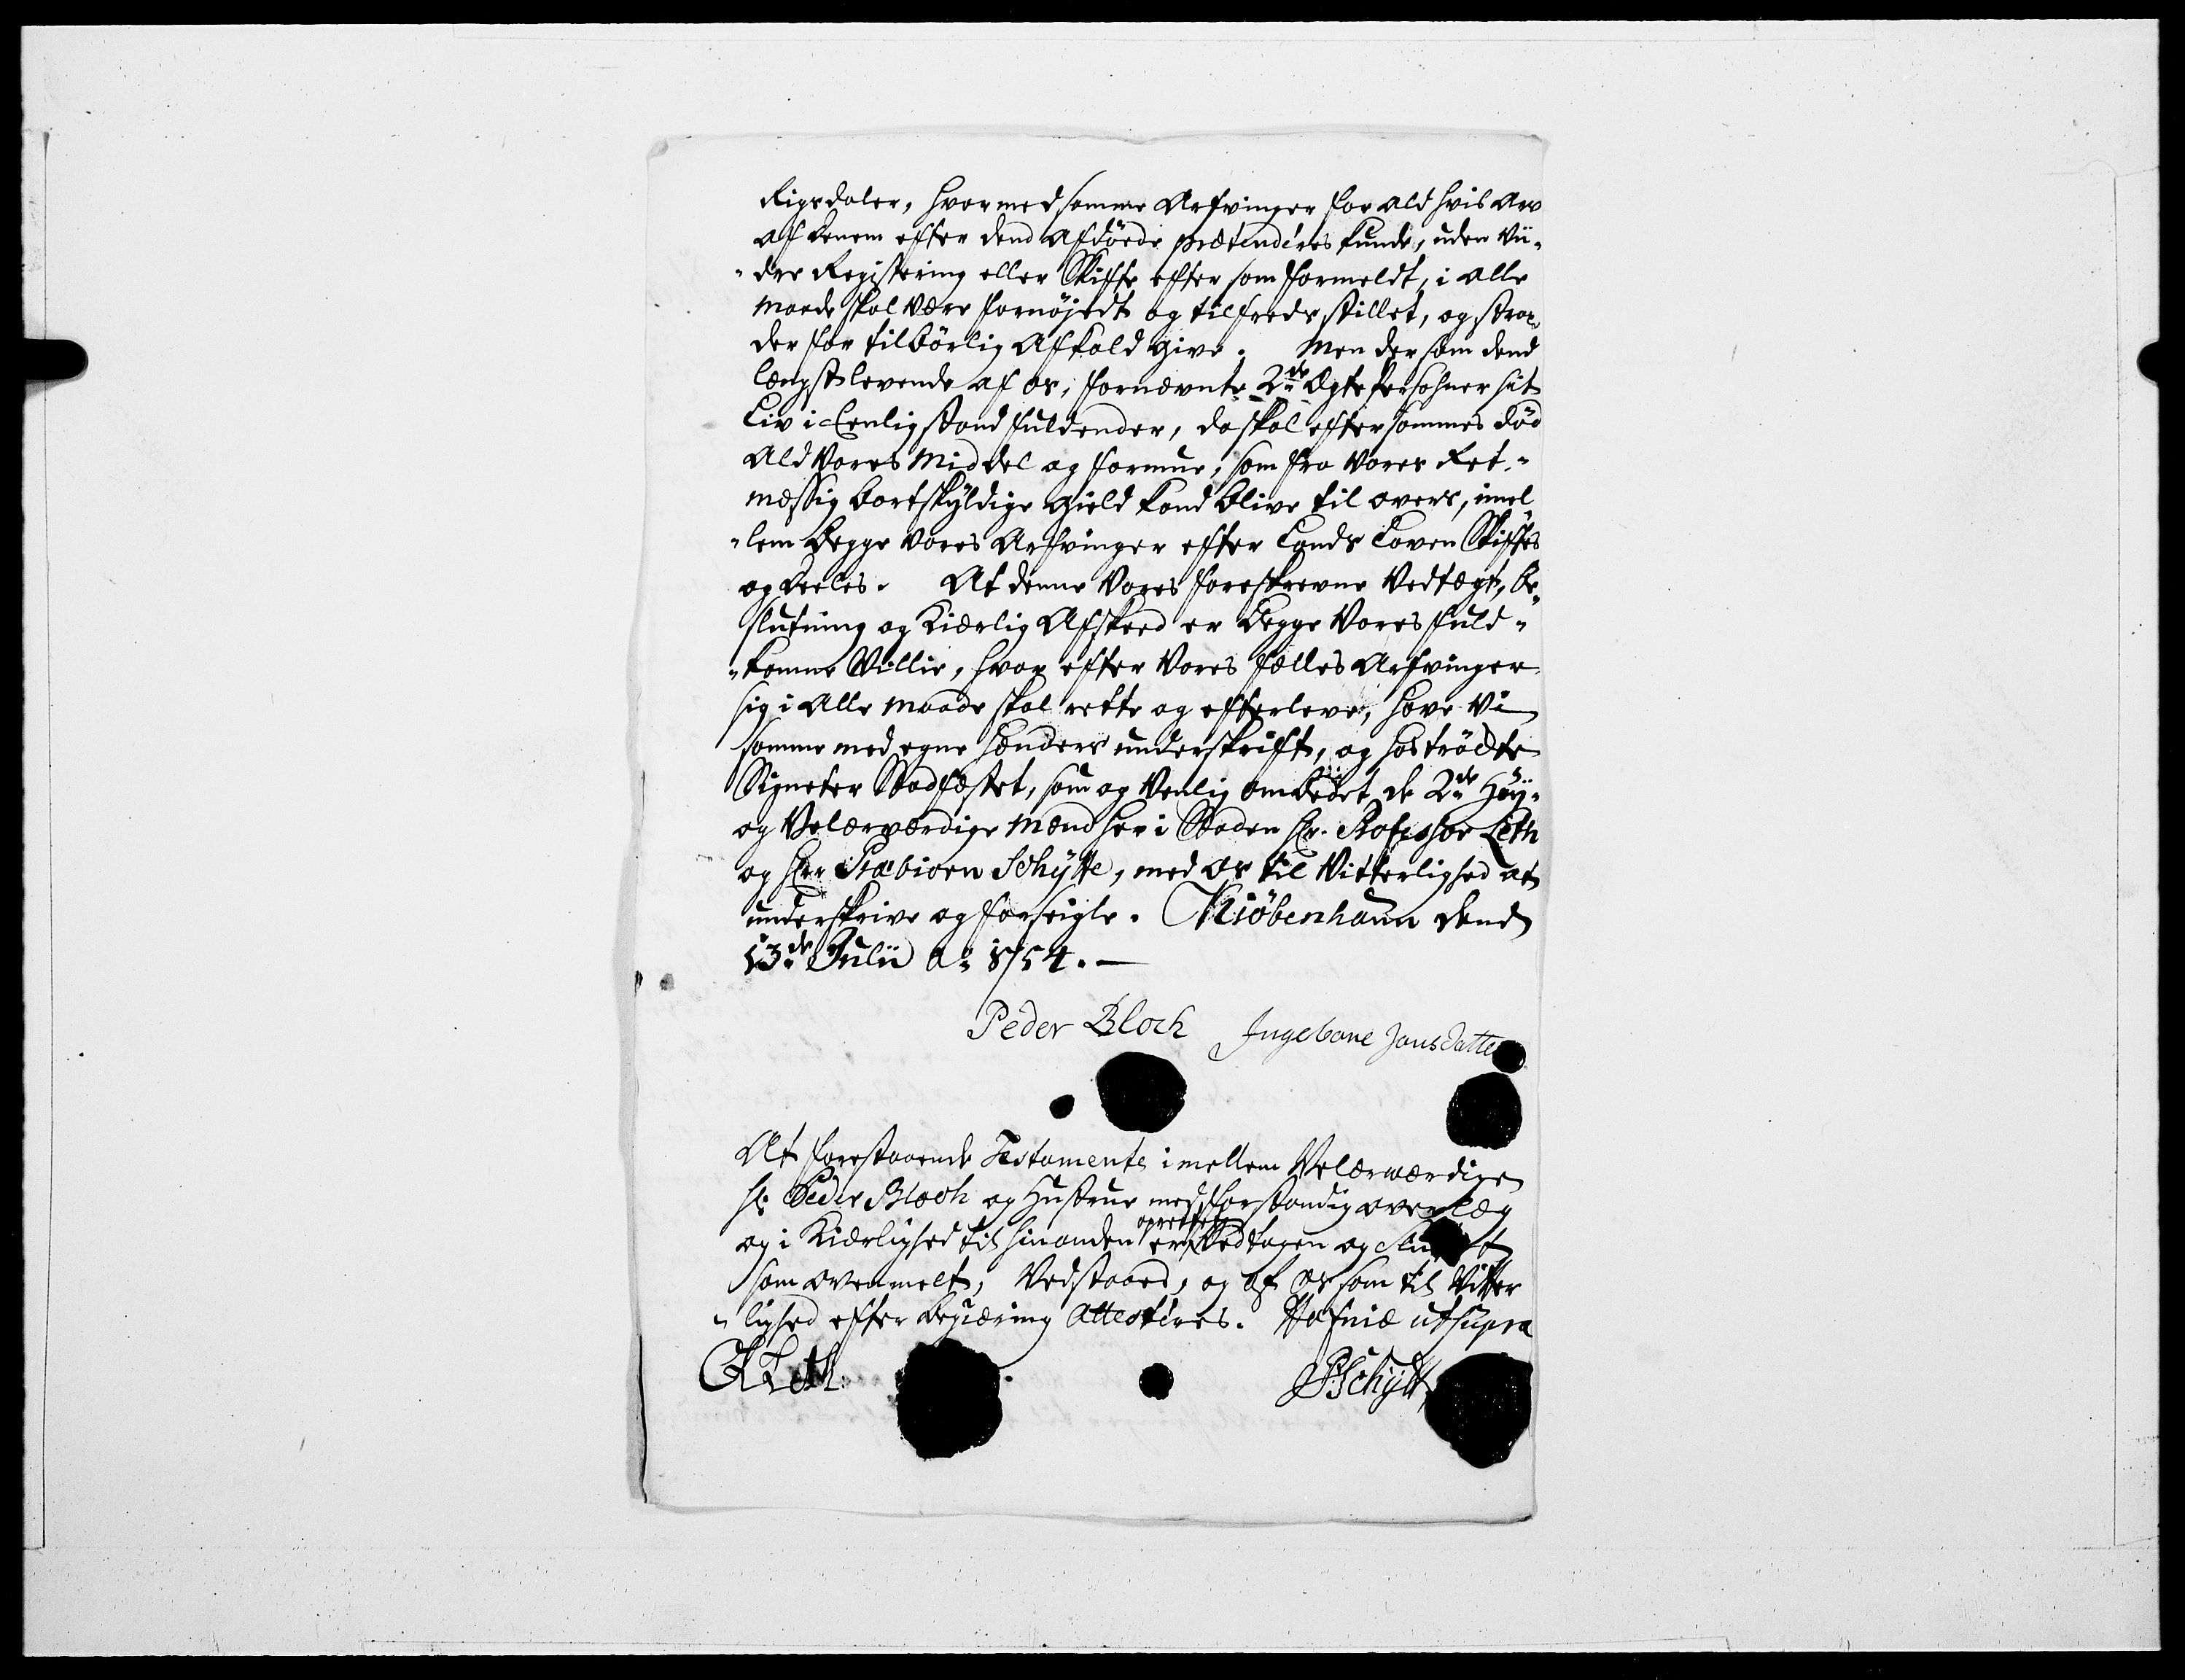 Rigsdaler, hvormed samme Arfvinger for ald hvis Arv
af denem efter dend Afdöede prætenderes kunde, uden vii-
"dre Registering eller Skifte efter som formeldt, i alle
Maade skal være fornöjedt og tilfredsstillet, og strax
derfor tilbörlig Afkald give. Men dersom dend
længstlevende af os, fornævnte 2de Ægte Persohner sit
Liv i Eenlig stand fuldender, da skal efter sammes död
Ald vores Middel og formue, som fra vores Ret-
mæssig bortskyldige gield kand blive til overs, imel
"lem Begge vores Arfvinger efter Lands Loven Skiftes
og deeles. At denne Vores foreskrevne Vedtægt, be-
slutning og Kierlig Afskeed er Begge Vores fuld-
"komne Villie, hvor efter Vores fælles Arfvinger
sig i Alle Maade skal rette og efterleve, have Vi
samme med egne hænders underskrift, og hoströgte
Signeter Stadfæstet, som og Venlig ombedet de 2de Höy-
og Velærværdige Mænd her i Staden Hr. Professor Leth
og Herr Præbiørn Schytte, med os til Vitterlighed at
underskrive og forseigle. Kiöbenhaun dend
13de Julii Ao 1754.
Peder Bloch Ingebore Jansdatter
At forestaaende Testamente imellem Velærværdige
Hr Peder Bloch og Hustrue med forstandig overlæg
og i Kierlighed til hinanden er oprettet Vedtagen og Sluttet
som ovenmelt, Vedstaaes, og af os som til Vitter
"lighed efter begiæring Attesteres. Hafniæ ut supra
Leth. PSchytte